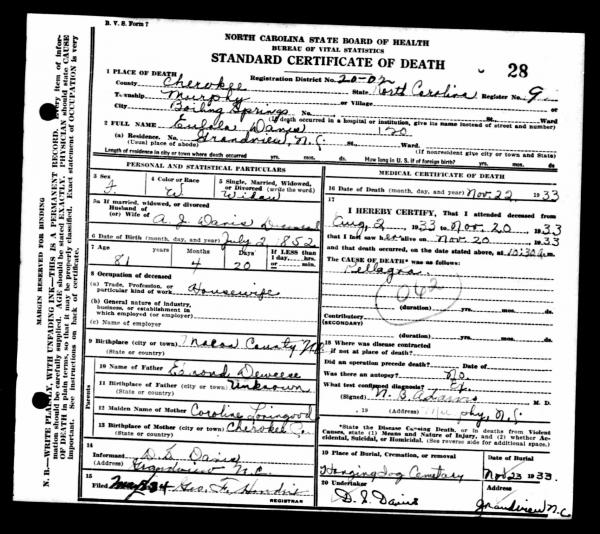 B. V. S. Form 7
NORTH CAROLINA STATE BOARD OF HEALTH
BUREAU OF VITAL STATISTICS
STANDARD CERTIFICATE OF DEATH
28
1 PLACE OF DEATH
Registration District No. 20-02
County Cherokee State North Carolina Register No. 9
Township Murphy or Village
City Boiling Springs No. St. Ward
(If death occurred in a hospital or institution, give its name instead of street and number)
2 FULL NAME Eulala Davis 120
(a) Residence. No. Grandview, N.C. St. Ward.
(Usual place of abode) (If nonresident give city or town and State)
Length of residence in city or town where death occurred yrs. mos. ds. How long in U. S. if of foreign birth? yrs. mos. ds.
PERSONAL AND STATISTICAL PARTICULARS
3 Sex 4 Color or Race 5 Single, Married, Widowed, or Divorced (write the word)
F W Widow
5a If married, widowed, or divorced
Husband of
(or) Wife of A. J. Davis Deceased
6 Date of Birth (month, day, and year) July 2 852
7 Age Years Months Days If LESS than 1 day, hrs. or min.
81 4 20
8 Occupation of deceased
(a) Trade, Profession, or particular kind of work Housewife
(b) General nature of industry, business, or establishment in which employed (or employer)
(c) Name of employer
9 Birthplace (city or town) Macon County N.C.
(State or country)
Parents
10 Name of Father Edmond Deweese
11 Birthplace of Father (city or town) Unknown
(State or country)
12 Maiden Name of Mother Caroline Loingood
13 Birthplace of Mother (city or town) Cherokee Co.
(State or country)
14
Informant D. S. Davis
(Address) Grandview N.C.
15
Filed Geo. F.
REGISTRAR
MEDICAL CERTIFICATE OF DEATH
16 Date of Death (month, day, and year) Nov. 22 1933
17
I HEREBY CERTIFY, That I attended deceased
from Aug. 2, 1933 to Nov. 20 1933
that I last saw her alive on Nov. 20 1933
and that death occurred, on the date stated above, at 10:30 a m.
The CAUSE OF DEATH* was as follows:
Pellagra
062
(duration) yrs. mos. ds.
Contributory
(SECONDARY)
(duration) yrs. mos. ds.
18 Where was disease contracted
if not at place of death?
Did an operation precede death? Date of
Was there an autopsy? No
What test confirmed diagnosis? Ex.
(Signed) N. B. Adams M. D.
, 19 (Address) Murphy, N.C.
*State the Disease Causing Death, or in deaths from Violent Causes, state (1) Means and Nature of Injury, and (2) whether Accidental, Suicidal, or Homicidal. (See reverse side for additional space.)
19 Place of Burial, Cremation, or Removal Date of Burial
Hanging Dog Cemetary Nov 23 1933.
20 Undertaker Address
D. S. Davis Grandview N.C.
MARGIN RESERVED FOR BINDING
N. B.—WRITE PLAINLY, WITH UNFADING INK—THIS IS A PERMANENT RECORD. Every item of information should be carefully supplied. AGE should be stated EXACTLY. PHYSICIAN should state CAUSE OF DEATH in plain terms, so that it may be properly classified. Exact statement of OCCUPATION is very important. See instructions on back of certificate.